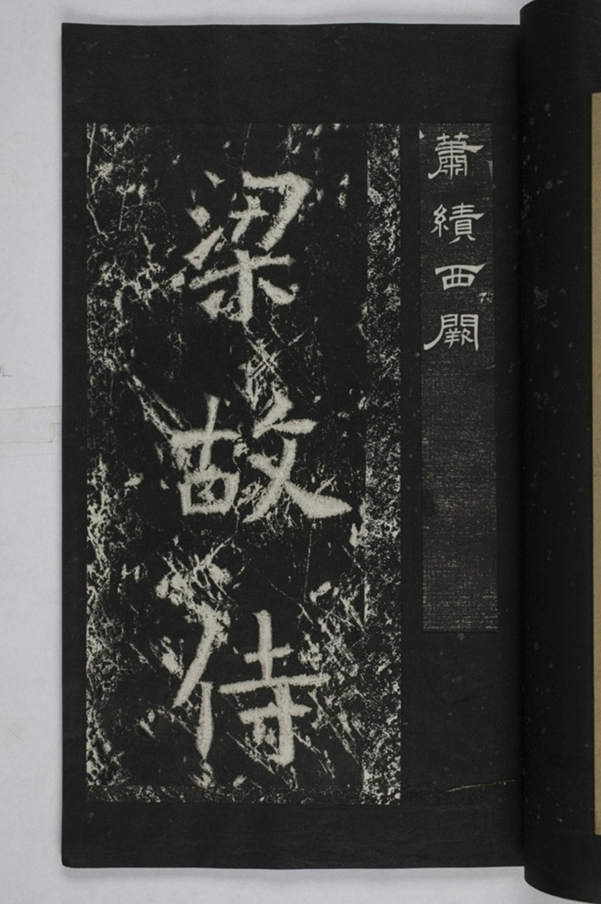 蕭績西闕
梁故侍